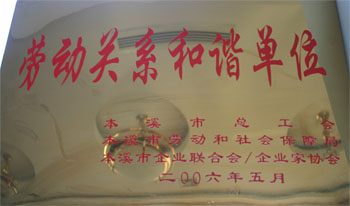 劳动关系和谐单位
本溪市总工会
本溪市劳动和社会保障局
本溪市企业联合会/企业家协会
二00六年五月